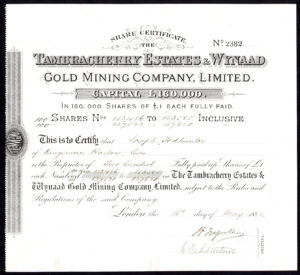 SHARE CERTIFICATE
THE Nº 2382
TAMBRACHERRY ESTATES & WYNAAD
GOLD MINING COMPANY, LIMITED.
CAPITAL £160,000.
IN 160,000 SHARES OF £1 EACH FULLY PAID.
SHARES Nos TO INCLUSIVE
This is to Certify that Joseph
of
is the Proprietor of Two Hundred Fully paid up Shares of £1
each Numbered in The Tambracherry Estates &
Wynaad Gold Mining Company, Limited, subject to the Rules and
Regulations of the said Company.
London, the 16th day of May 1882